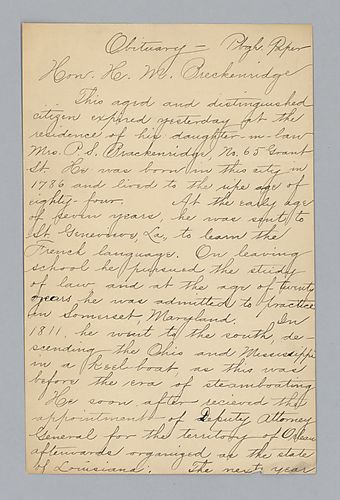 Obituary — Pbgh. Paper
Hon. H. M. Breckenridge
This aged and distinguished
citizen expired yesterday at the
residence of his daughter-in-law
Mrs. P. S. Brackenridge, No. 65 Grant
St. He was born in this city in
1786 and lived to the ripe age of
eighty-four. At the early age
of seven years, he was sent to
St. Genevieve, La., to learn the
French language. On leaving
school he pursued the study
of law, and at the age of twenty
years he was admitted to practice
in Somerset Maryland. In
1811, he went to the south, de-
scending the Ohio and Mississippi
in a keel-boat, as this was
before the era of steamboating
He soon after recieved the
appointment of Deputy Attorney
General for the territory of Orleans
afterwards organized as the state
of Louisiana. The next year